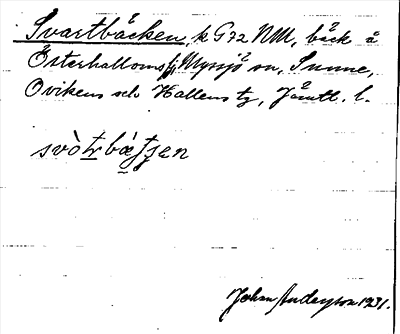 Svartbäcken, k G72 NM, bäck å
Österhalloms fj Myssjö sn, Sunne,
Ovikens och Hallens tg, Jämtl. l.
svòtrbæʃʒen
Johan Anderson 1931.